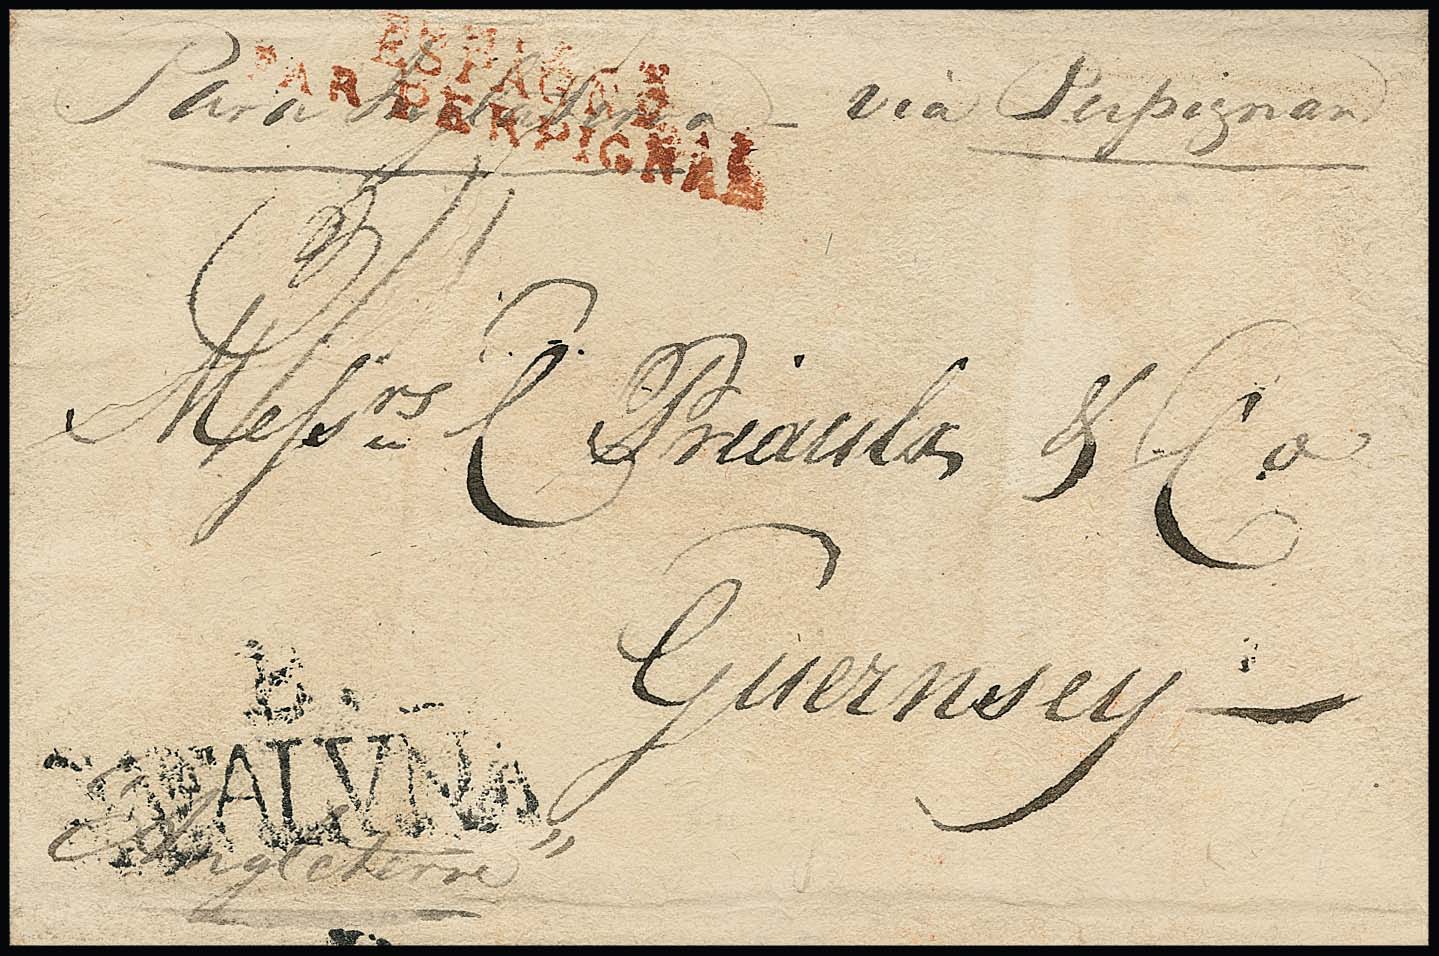 ESPAGNE
PAR PERPIGNAN
Para Inglaterra - via Perpignan
Messrs C Priaulx & Co
Guernsey -
B.
CATALUÑA
Angleterre "